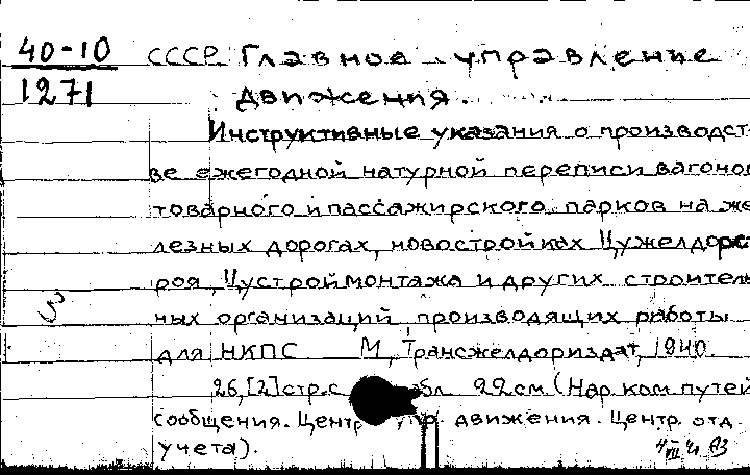 40-10 СССР. Главное управление
1271 движения.
Инструктивные указания о производст
ве ежегодной натурной переписи вагонов
товарного и пассажирского парков на же
лезных дорогах, новостройках Цужелдорст
роя, Цустроймонтажа и других строитель
ных организаций, производящих работы
для НКПС М, Трансжелдориздат, 1940.
26, [2] стр. с табл. 22 см (Нар. ком. путей
сообщения. Центр. упр. движения. Центр. отд.
учета).